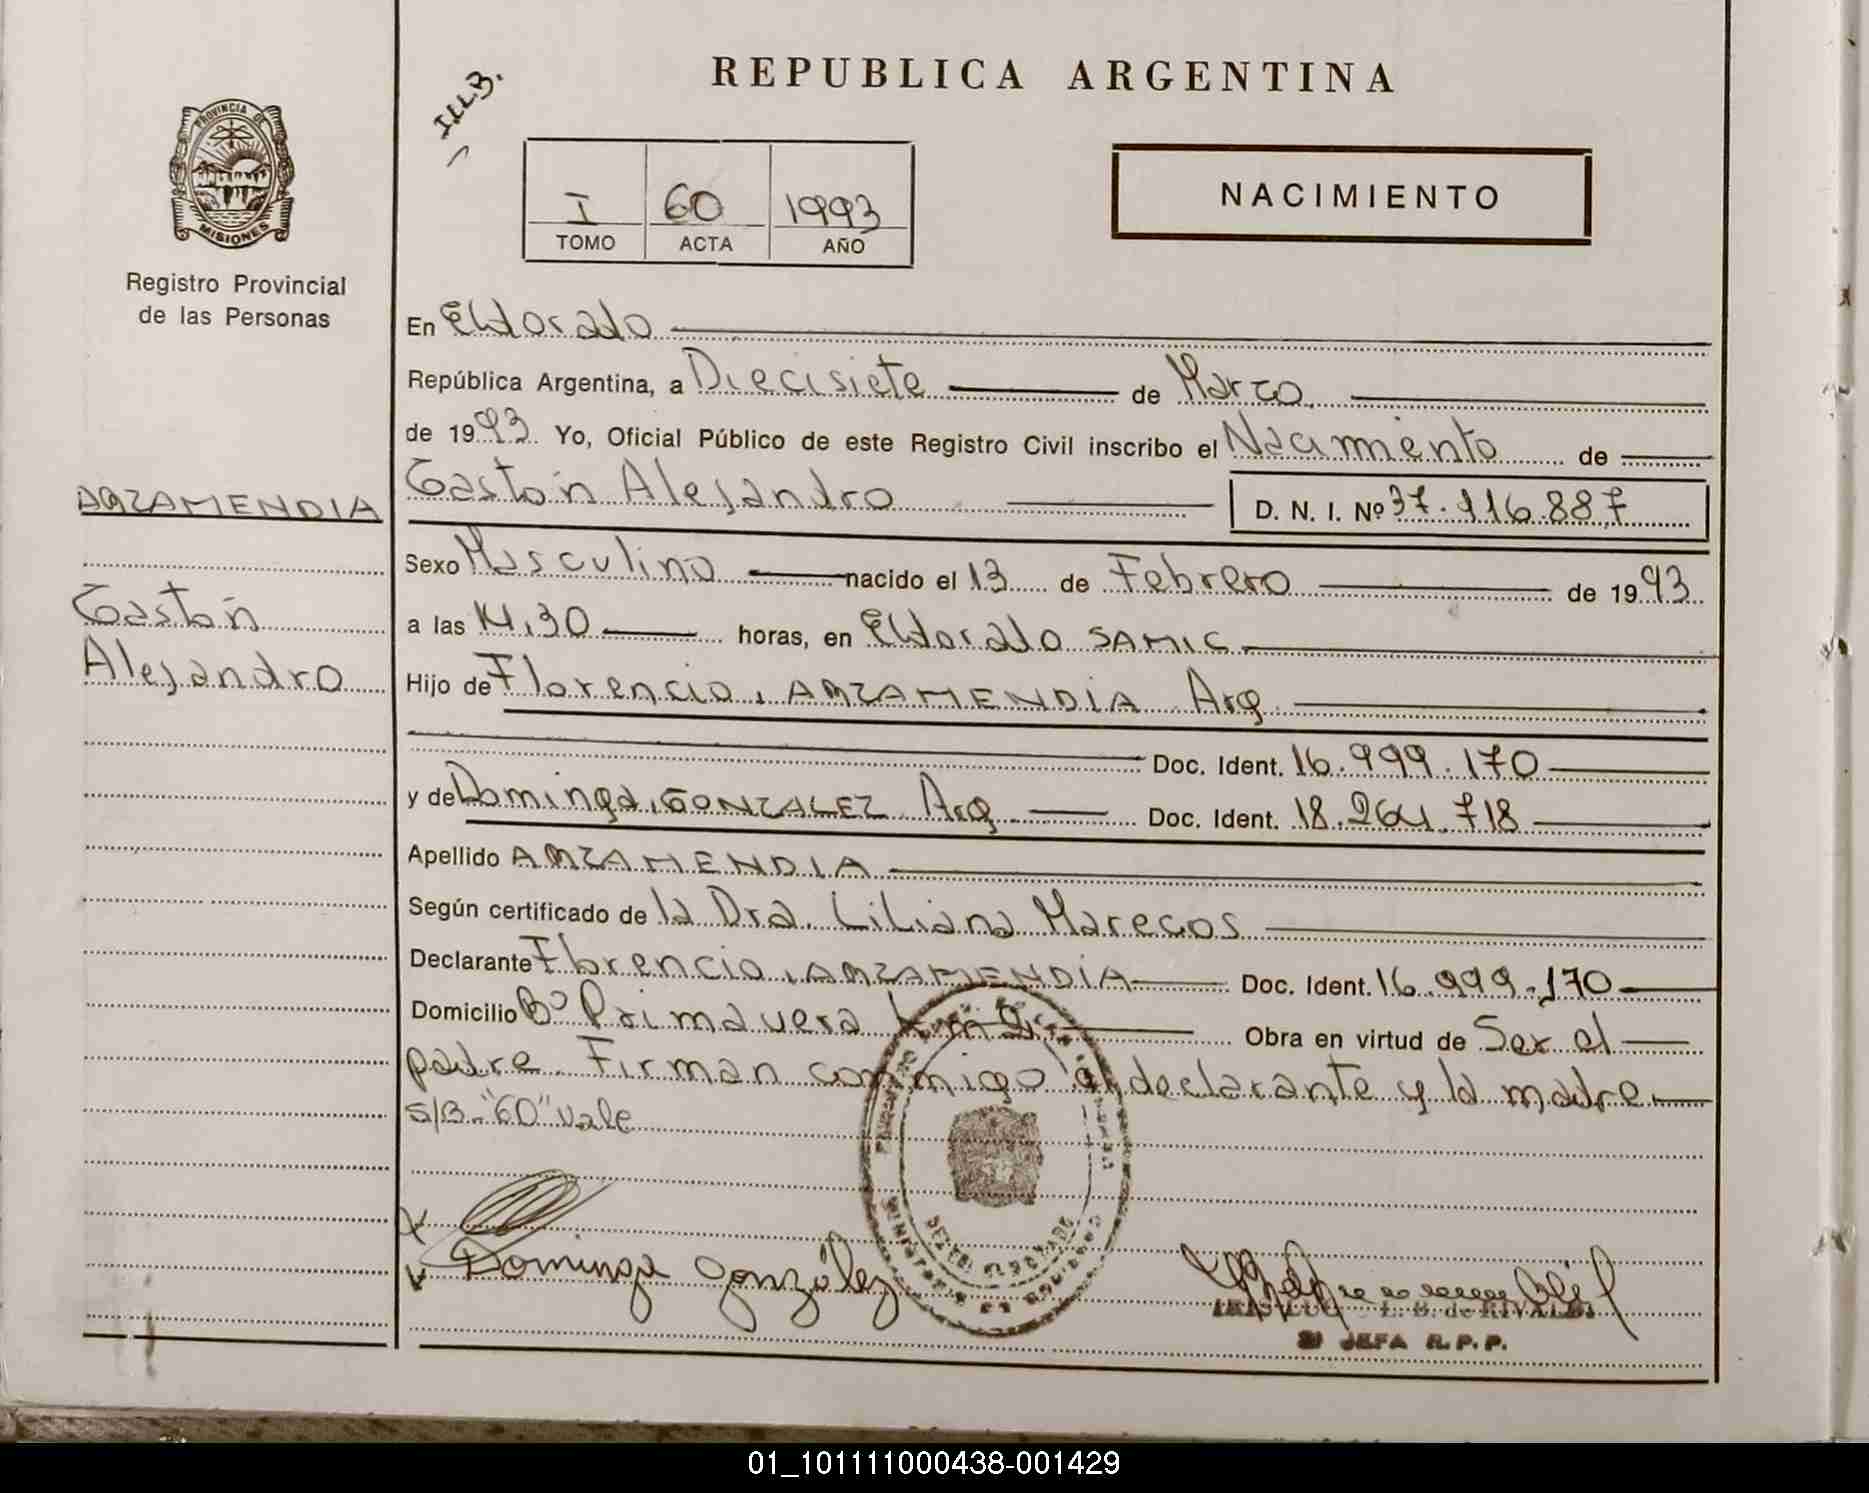 I.LL.B.
REPUBLICA ARGENTINA
PROVINCIA DE
MISIONES
Registro Provincial
de las Personas
I 60 1993
TOMO ACTA AÑO
NACIMIENTO
En Eldorado
República Argentina, a Diecisiete de Marzo
de 1993 Yo, Oficial Público de este Registro Civil inscribo el Nacimiento de
Gastón Alejandro D. N. I. Nº 37.116.887
ARZAMENDIA
Gastón
Alejandro
Sexo Masculino nacido el 13 de Febrero de 1993
a las 14.30 horas, en Eldorado SAMIC
Hijo de Florencio, ARZAMENDIA Arg
Doc. Ident. 16.999.170
y de Dominga, GONZALEZ Arg Doc. Ident. 18.264.718
Apellido ARZAMENDIA
Según certificado de la Dra. Liliana Marecos
Declarante Florencio, ARZAMENDIA Doc. Ident. 16.999.170
Domicilio Bº Primavera km 9 Obra en virtud de Ser el
padre. Firman conmigo el declarante y la madre
S/B-"60" Vale
Dominga González
L. B. de RIVALDI
JEFA R.P.P.
01_101111000438-001429